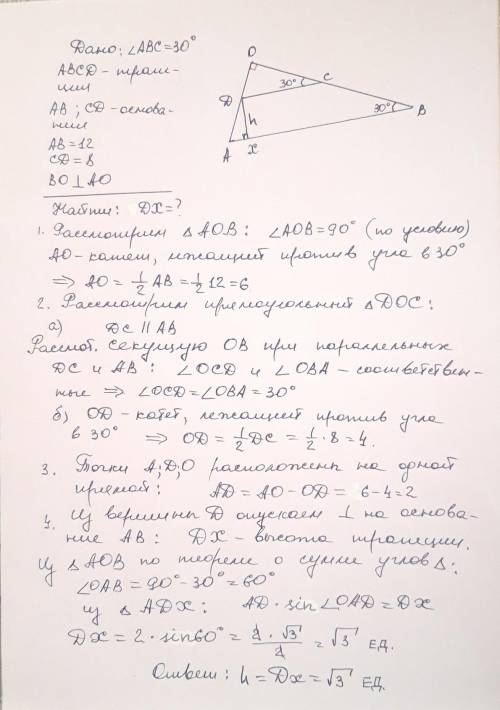 Дано: ∠ABC=30°
ABCD - трапе-
ция
AB ; CD - основа-
ния
AB = 12
CD = 8
BO ⊥ AO
Найти: DX = ?
O
C
30°
D
h
30°
B
A
X
1. Рассмотрим △AOB: ∠AOB=90° (по условию)
AO - катет, лежащий против угла в 30°
⇒ AO = 1/2 AB = 1/2 12 = 6
2. Рассмотрим прямоугольный △DOC:
а) DC || AB
Рассмот. секущую OB при параллельных
DC и AB : ∠OCD и ∠OBA - соответствен-
ные ⇒ ∠OCD = ∠OBA = 30°
б) OD - катет, лежащий против угла
в 30° ⇒ OD = 1/2 DC = 1/2 · 8 = 4.
3. Точки A; D; O расположены на одной
прямой: AD = AO - OD = 6 - 4 = 2
4. Из вершины D опускаем ⊥ на основа-
ние AB : DX - высота трапеции.
Из △AOB по теореме о сумме углов △:
∠OAB = 90° - 30° = 60°
из △ADX : AD · sin∠OAD = DX
DX = 2 · sin60° = 2 · √3 / 2 = √3 ед.
Ответ: h = DX = √3 ед.